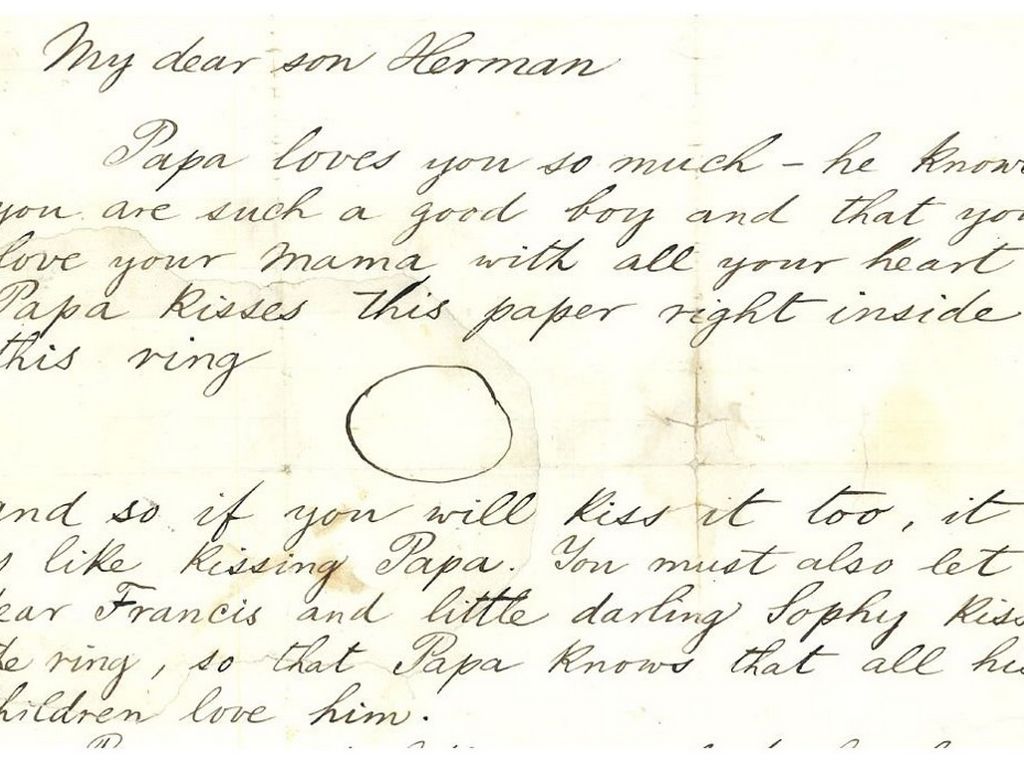 My dear son Herman
Papa loves you so much – he knows
you are such a good boy and that you
love your Mama with all your heart
Papa kisses this paper right inside
this ring
and so if you will kiss it too, it
is like kissing Papa. You must also let
dear Francis and little darling Sophy kiss
the ring, so that Papa knows that all his
children love him.